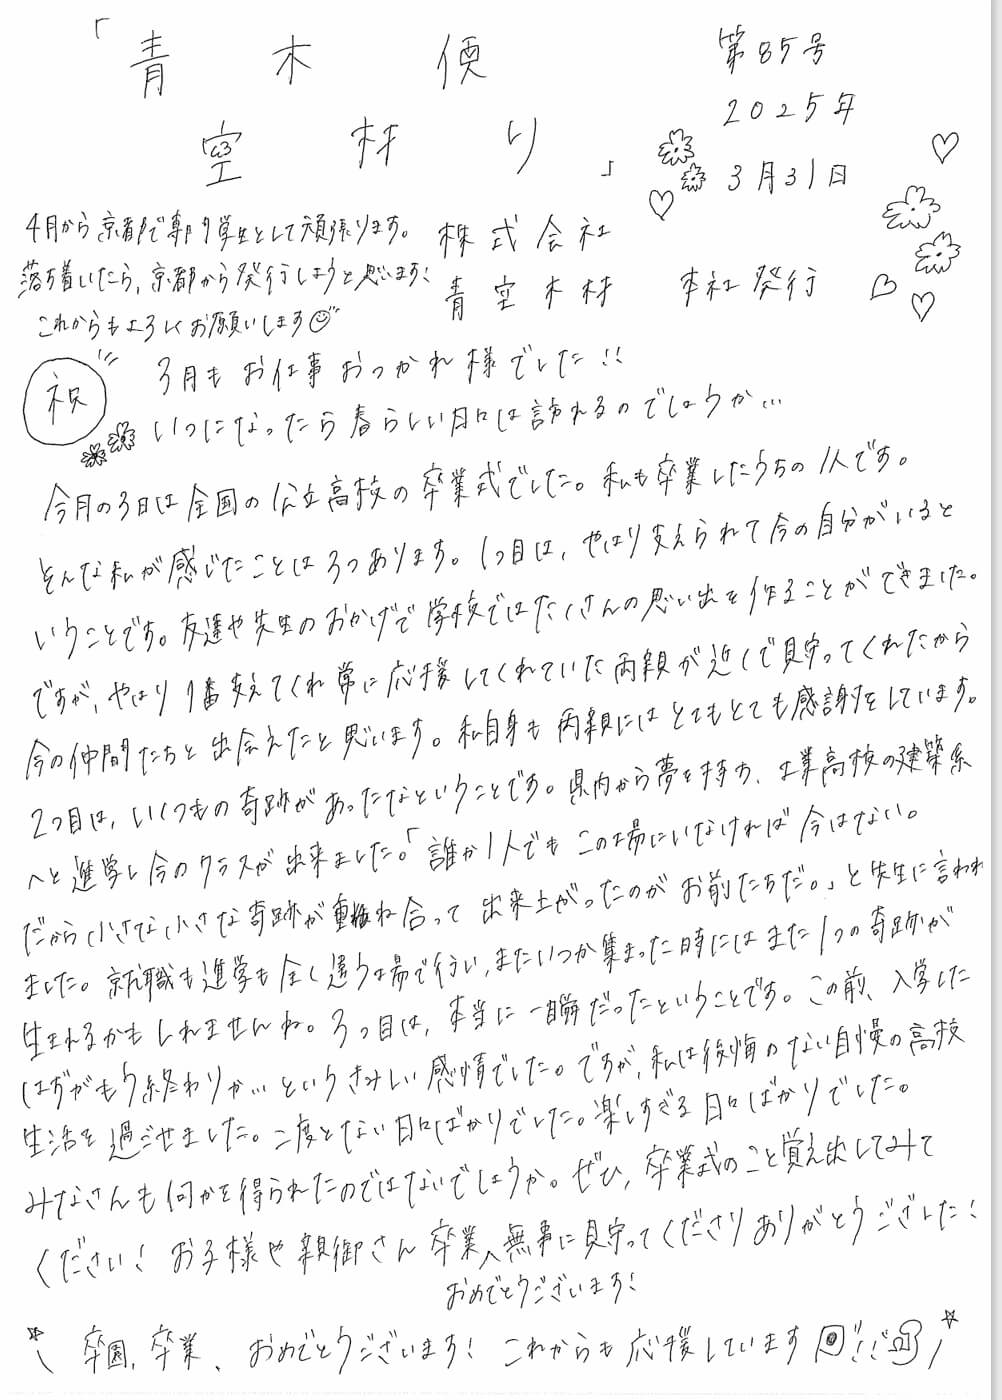 「青木便
空材り」
第85号
2025年
3月31日
4月から京都で専門学生として頑張ります。
落ち着いたら、京都から発行しようと思います!
これからもよろしくお願いします
株式会社
青空木材 本社発行
祝
3月もお仕事おつかれ様でした!!
いつになったら春らしい日々は訪れるのでしょうか…
今月の3日は全国の公立高校の卒業式でした。私も卒業したうちの1人です。
そんな私が感じたことは3つあります。1つ目は、やはり支えられて今の自分がいると
いうことです。友達や先生のおかげで学校ではたくさんの思い出を作ることができました。
ですが、やはり1番支えてくれ常に応援してくれていた両親が近くで見守ってくれたから
今の仲間たちと出会えたと思います。私自身も両親にはとてもとても感謝をしています。
2つ目は、いくつもの奇跡があったなということです。県内から夢を持ち、工業高校の建築系
へと進学し今のクラスが出来ました。「誰か1人でもこの場にいなければ今はない。
だから小さな小さな奇跡が重ね合って出来上がったのがお前たちだ。」と先生に言われ
ました。就職も進学も全く違う場で行い、またいつか集まった時にはまた1つの奇跡が
生まれるかもしれませんね。3つ目は、本当に一瞬だったということです。この前、入学した
はずがもう終わりか…というさみしい感情でした。ですが、私は後悔のない自慢の高校
生活を過ごせました。二度とない日々ばかりでした。楽しすぎる日々ばかりでした。
みなさんも何かを得られたのではないでしょうか。ぜひ、卒業式のこと覚え出してみて
ください! お子様や親御さん卒業、無事に見守ってくださりありがとうございました!
おめでとうございます!
卒園、卒業、おめでとうございます! これからも応援しています